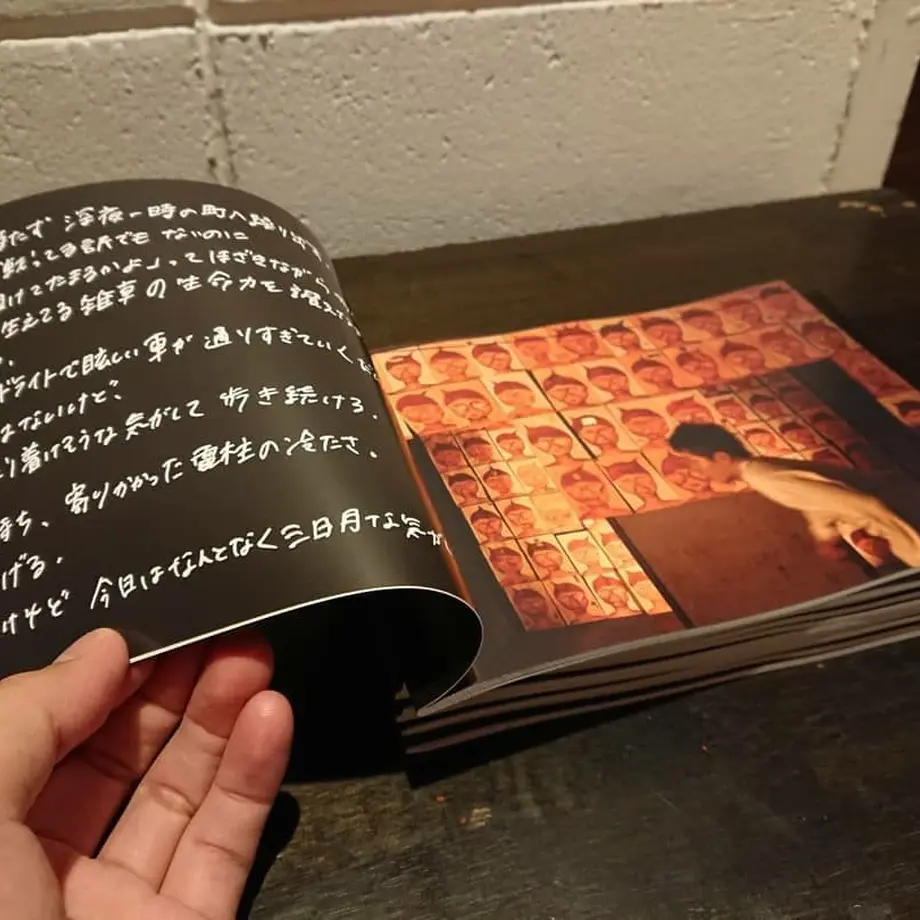 たず 深夜一時の町へ
戦ってる訳でも ないのに
けてたまるかよ」ってほざきながら
生えてる雑草の生命力を
ドライトで眩しい車が通りすぎていく
はないけど、
り着けそうな気がして 歩き続ける。
持ち、寄りかかった電柱の冷たさ。
げる。
けれど 今日はなんとなく三日月な気が